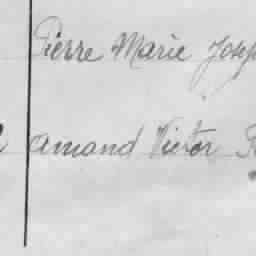 Pierre Marie Josep
amand Victor